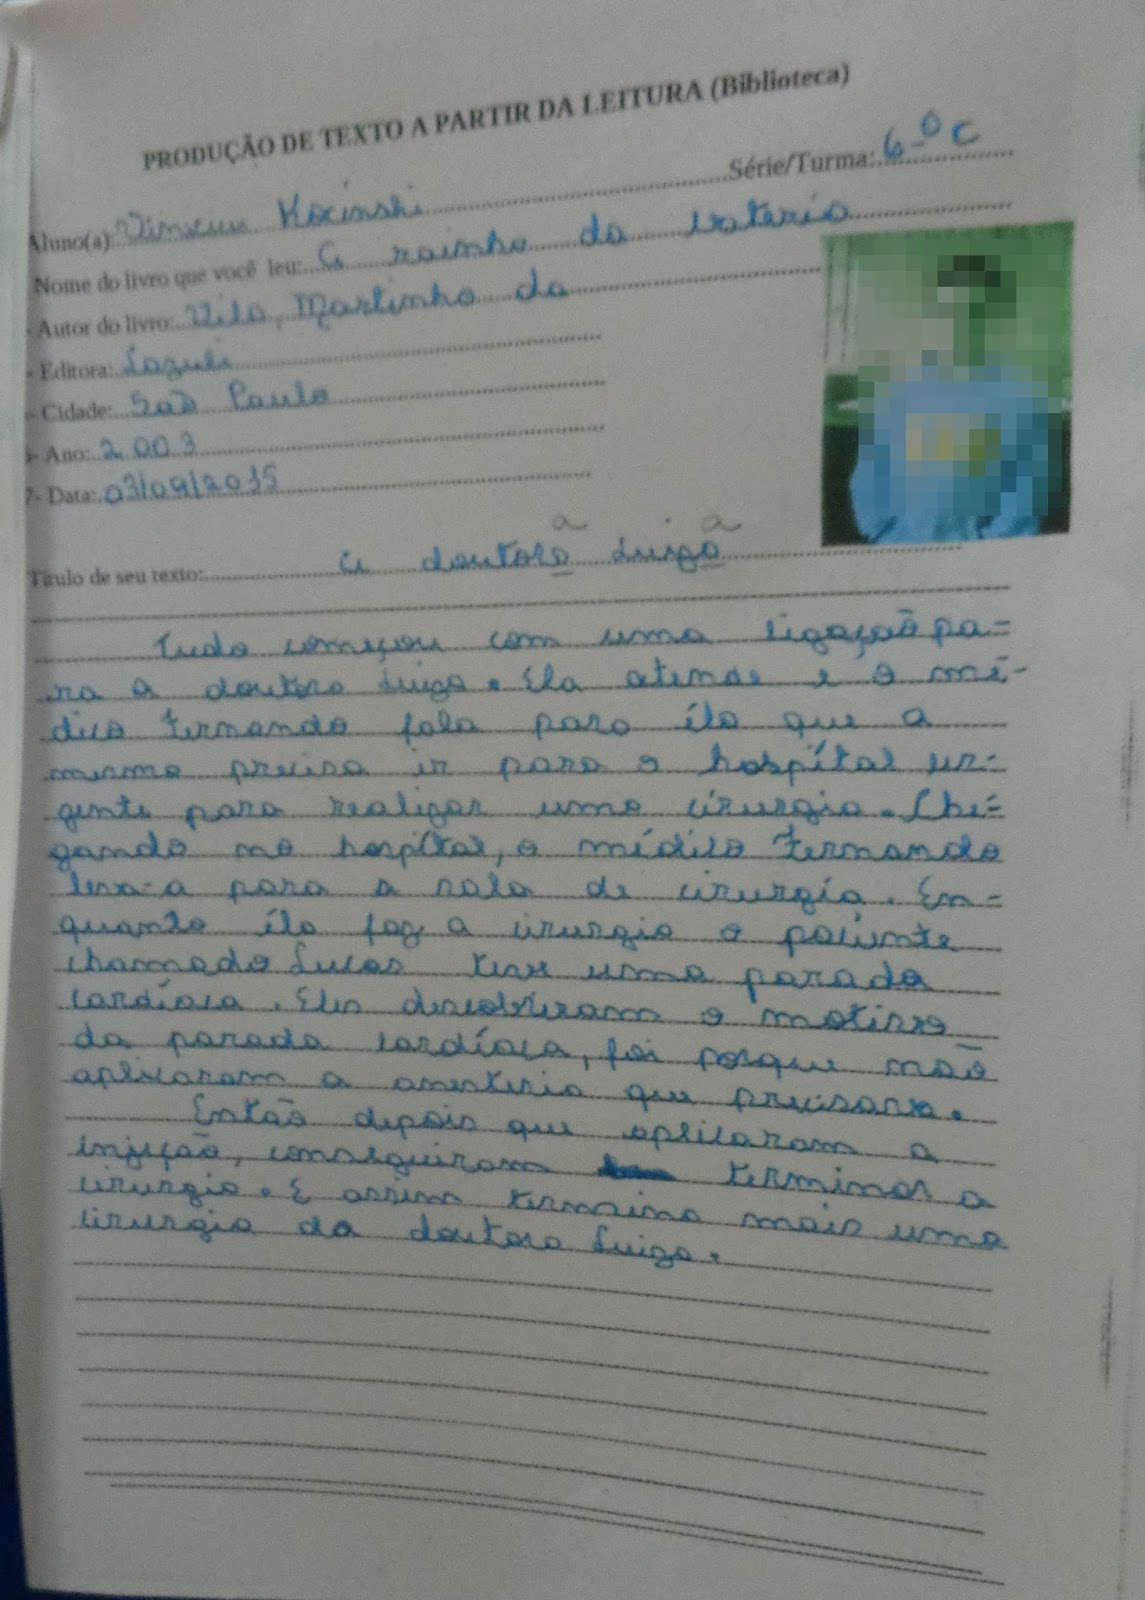 PRODUÇÃO DE TEXTO A PARTIR DA LEITURA (Biblioteca)
Aluno(a): Kocinski Série/Turma: 6º C
Nome do livro que você leu: A rainha da bateria
- Autor do livro: Vila, Martinho da
- Editora: Lazuli
- Cidade: São Paulo
- Ano: 2.003
7- Data: 03/09/2015
a a
Título de seu texto: A doutora Luiga
Tudo começou com uma ligação pa=
ra a doutora Luiga. Ela atende e o mé-
dico Fernando fala para éla que a
mesma precisa ir para o hospítal ur=
gente para realizar uma cirurgia. Che=
gando no hospítal, o médico Fernando
leva-a para a sala de cirurgia. En=
quanto éla faz a cirurgia o paciente
chamado Lucas teve uma parada
cardíaca. Eles descobriram o motivo
da parada cardíaca, foi porque não
aplicaram a anesteria que precisava.
Então depois que aplicaram a
injeção, conseguiram terminar a
cirurgia. E assim termina mais uma
cirurgia da doutora Luiga.